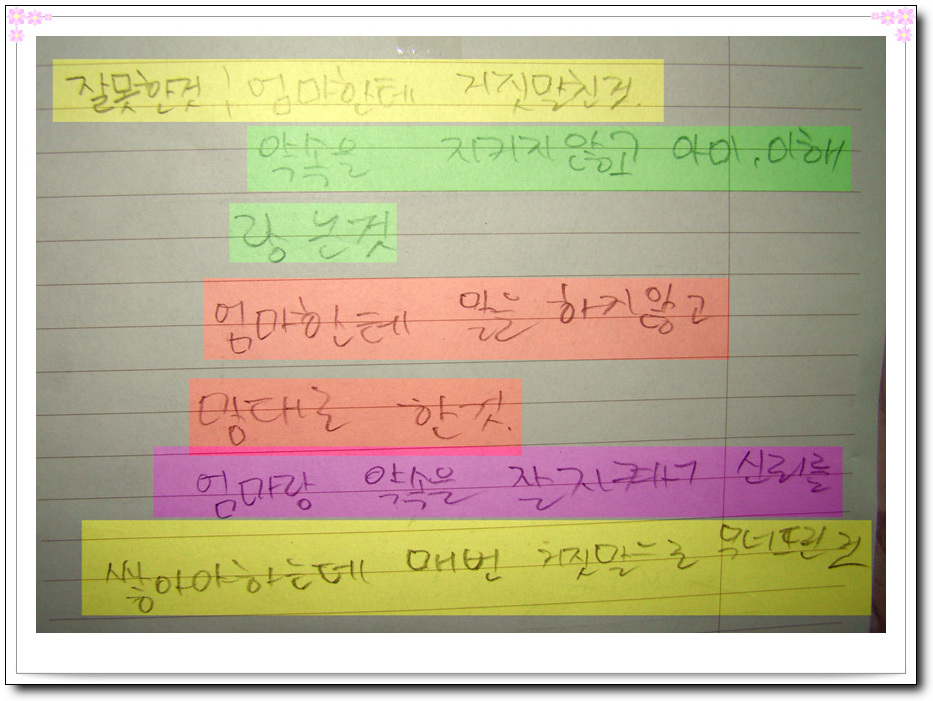 잘못한것 | 엄마한테 거짓말친거.
약속을 지키지않고 아미, 이해
랑 논것
엄마한테 말을 하지않고
맘대로 한것.
엄마랑 약속을 잘지켜서 신뢰를
쌓아야하는데 매번 거짓말으로 무너뜨린것